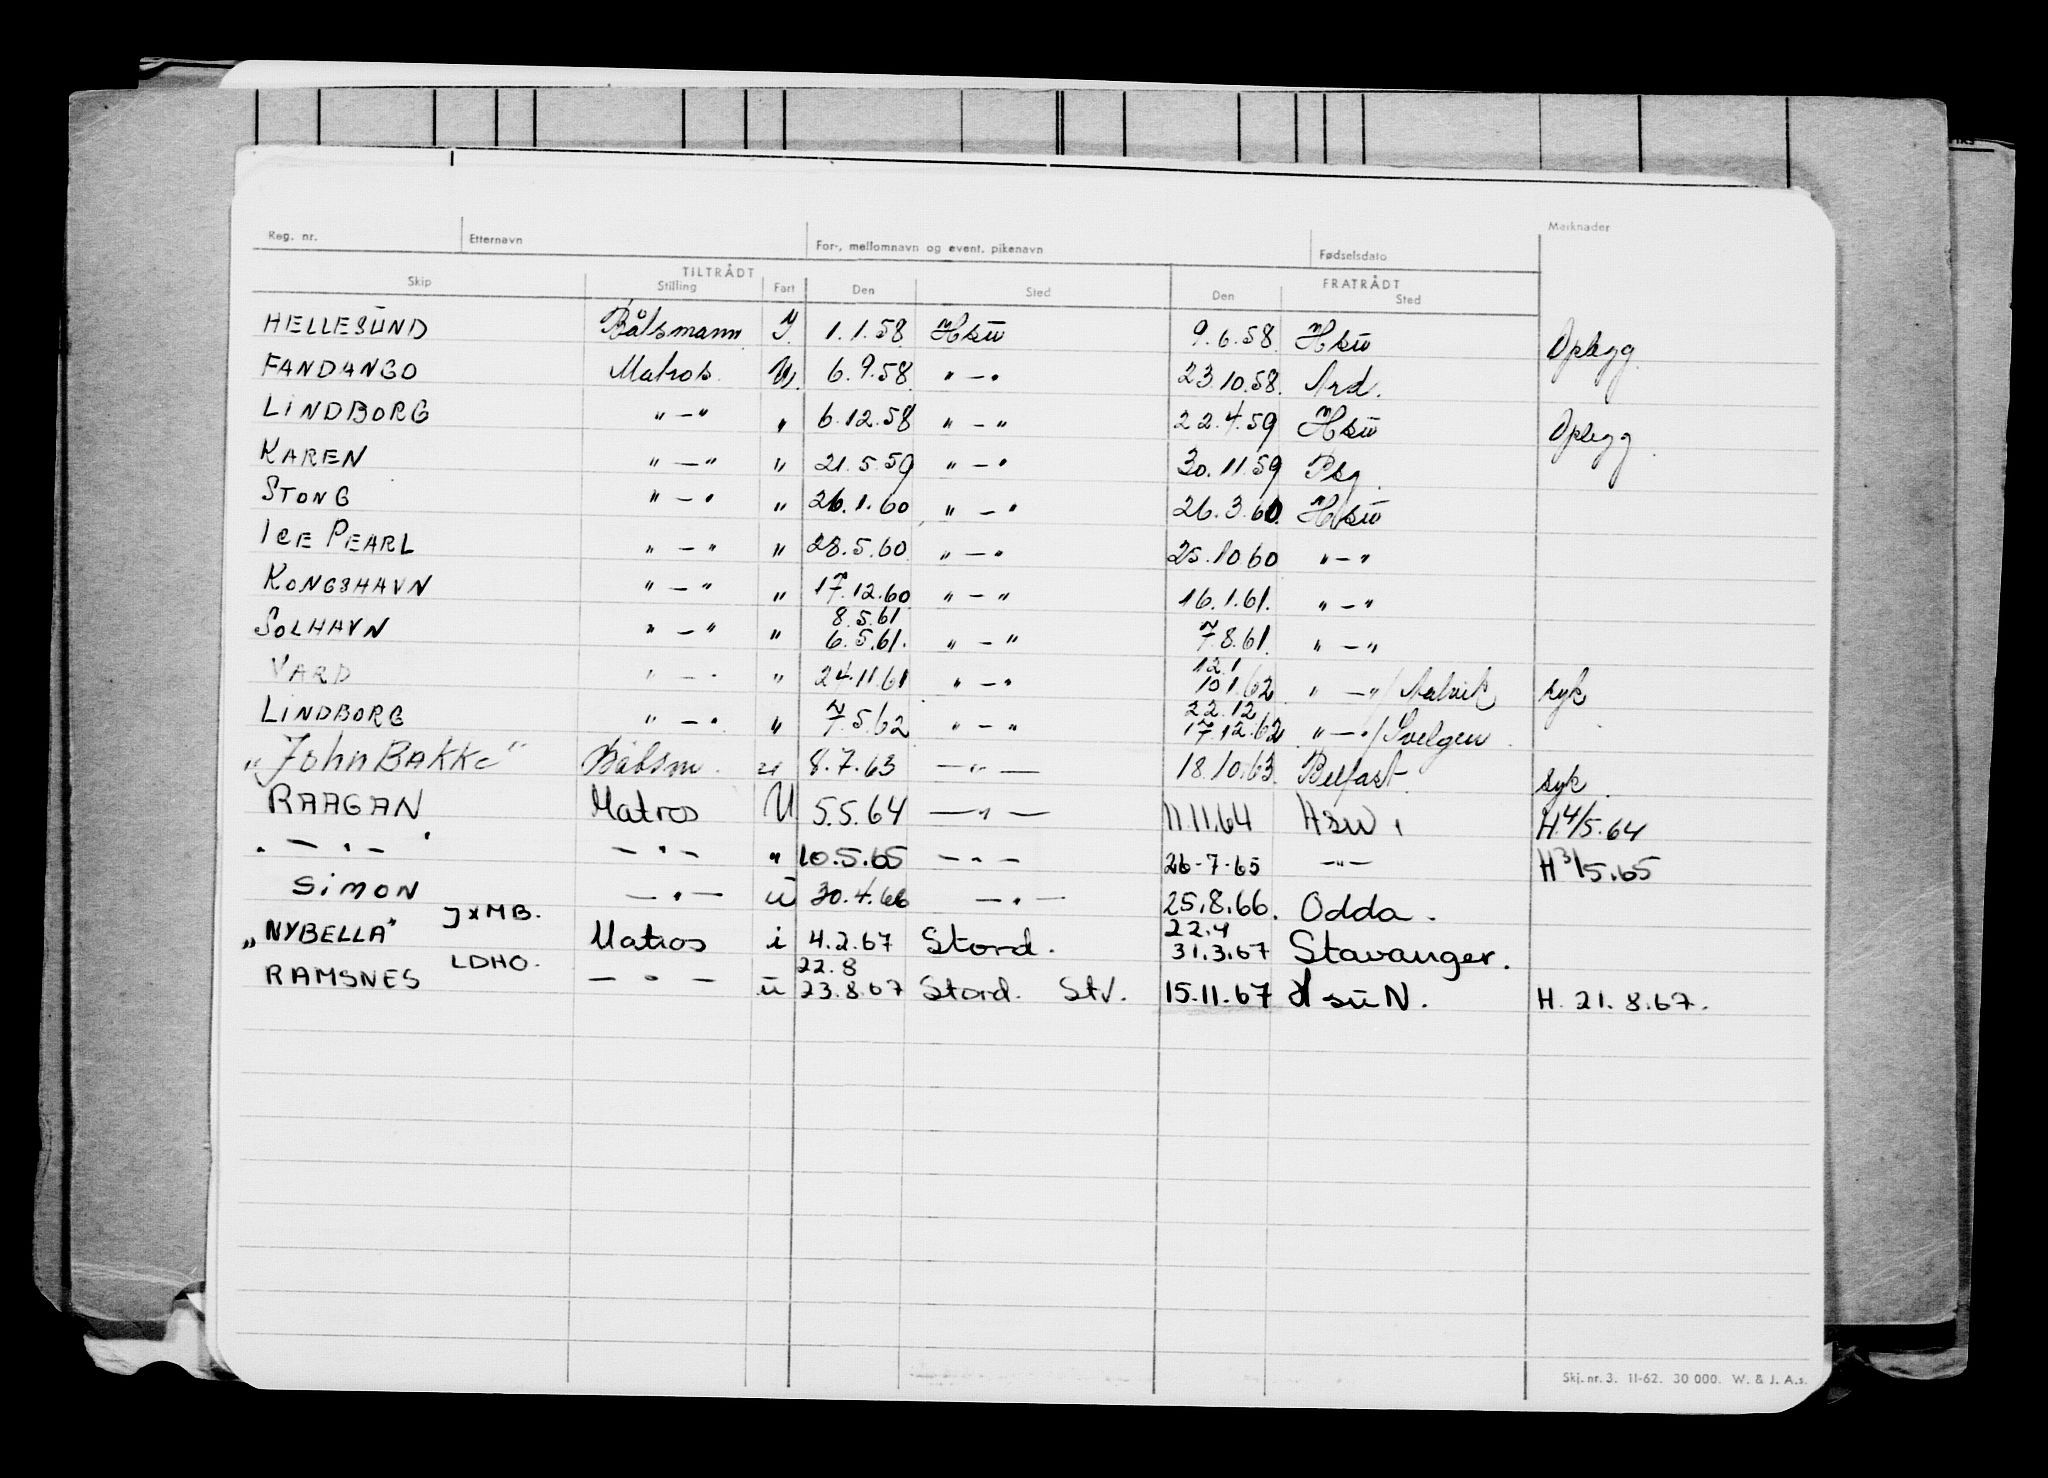 Reg. nr. Etternavn For-, mellomnavn og event. pikenavn Fødselsdato Merknader
TILTRÅDT FRATRÅDT
Skip Stilling Fart Den Sted Den Sted
HELLESUND Båtsmann I 1.1.58. Hsū 9.6.58. Hsū Oplegg
FANDANGO Matros. U. 6.9.58. " – " 23.10.58. Ard.
LINDBORG " – " " 6.12.58 " – " 22.4.59 Hsū Oplegg
KAREN " – " " 21.5.59 " – " 30.11.59 Psg.
STONG " – " " 26.1.60 " – " 26.3.60. Hsū
ICE PEARL " – " " 28.5.60 " – " 25.10.60 " – "
KONGSHAVN " – " " 17.12.60 " – " 16.1.61. " – "
8.5.61
SOLHAVN " – " " 6.5.61. " – " 7.8.61. " – "
12.1
VARD " – " " 24.11.61 " – " 10.1.62 " – " / Aalvik syk
22.12
LINDBORG " – " " 7.5.62 " – " 17.12.62 " – " / Svelgen
"John BAKKE" Båtsm. u 8.7.63 – " – 18.10.63. Belfast. syk.
RAAGAN Matros U 5.5.64 – " – 11.11.64 Hsū. H.4/5.64
" – " – " – " – " 10.5.65 – " – 26-7-65 – " – H3/5.65
SIMON – " – ū 30.4.66 – " – 25.8.66. Odda.
JXMB. 22.4
"NYBELLA" Matros i 4.2.67 Stord. 31.3.67 Stavanger.
LDHO. 22.8
RAMSNES – " – ū 23.8.67 Stord. Stv. 15.11.67 HsūN. H. 21.8.67.
Skj. nr. 3. 11-62. 30 000. W. & J. A.s.